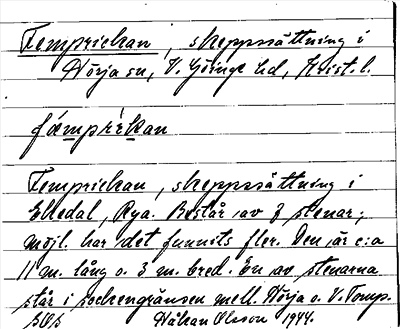 Femprickan, skeppssättning i
Nörja sn, V. Göinge hd, Krist. l.
fæmprekan
Femprickan, skeppssättning i
Ekedal, Rya. Består av 7 stenar;
möjl. har det funnits fler. Den är c:a
11 m. lång o. 3 m. bred. En av stenarna
står i sockengränsen mell. Nörja o. V. Torup.
Håkan Olsson 1944.